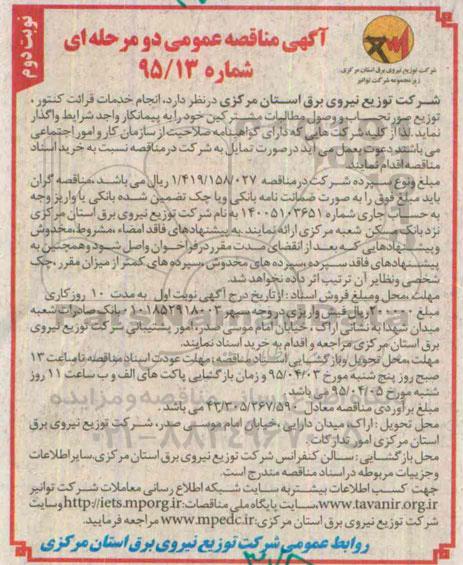 نوبت دوم
شرکت توزیع نیروی برق استان مرکزی
زیر مجموعه شرکت توانیر
آگهی مناقصه عمومی دو مرحله ای
شماره ۹۵/۱۳
شرکت توزیع نیروی برق استان مرکزی درنظر دارد، انجام خدمات قرائت کنتور،
توزیع صورتحساب و وصول مطالبات مشترکین خود را به پیمانکار واجد شرایط واگذار
نماید. لذا از کلیه شرکت هایی که دارای گواهینامه صلاحیت از سازمان کار و امور اجتماعی
می باشند دعوت بعمل می آید در صورت تمایل به شرکت در مناقصه نسبت به خرید اسناد
مناقصه اقدام نمایند.
مبلغ ونوع سپرده شرکت درمناقصه ۱/۴۱۹/۱۵۸/۰۲۷ ریال می باشد، مناقصه گران
باید مبلغ فوق را به صورت ضمانت نامه بانکی ویا چک تضمین شده بانکی یا واریز وجه
به حساب جاری شماره ۱۴۰۰۵۱۰۳۶۵۱ به نام شرکت توزیع نیروی برق استان مرکزی
نزد بانک مسکن شعبه مرکزی ارائه نمایند. به پیشنهادهای فاقد امضاء، مشروط، مخدوش
و پیشنهادهایی که بعد از انقضای مدت مقرر در فراخوان واصل شود و همچنین به
پیشنهادهای فاقد سپرده، سپرده های مخدوش، سپرده های کمتر از میزان مقرر، چک
شخصی ونظایر آن ترتیب اثر داده نخواهد شد.
مهلت، محل ومبلغ فروش اسناد: از تاریخ درج آگهی نوبت اول به مدت ۱۰ روز کاری
مبلغ ۲۰۰۰۰۰ ریال فیش واریزی در وجه سپهر ۰۱۰۱۸۵۲۹۱۸۰۰۳ بانک صادرات شعبه
میدان شهدا به نشانی اراک، خیابان امام موسی صدر، امور پشتیبانی شرکت توزیع نیروی
برق استان مرکزی مراجعه و اقدام به خرید اسناد نمایند.
مهلت، محل تحویل وبازگشایی اسناد مناقصه: مهلت عودت اسناد مناقصه تا ساعت ۱۳
صبح روز پنج شنبه مورخ ۹۵/۰۴/۰۳ و زمان بازگشایی پاکت های الف و ب ساعت ۱۱ روز
شنبه مورخ ۹۵/۰۴/۰۵ می باشد.
مبلغ برآوردی مناقصه معادل ۴۳/۳۰۵/۳۶۷/۵۹۰ می باشد.
محل تحویل: اراک، میدان دارایی، خیابان امام موسی صدر، شرکت توزیع نیروی برق
استان مرکزی امور تدارکات.
محل بازگشایی: سالن کنفرانس شرکت توزیع نیروی برق استان مرکزی، سایر اطلاعات
وجزییات مربوطه در اسناد مناقصه مندرج است.
جهت کسب اطلاعات بیشتر به سایت شبکه اطلاع رسانی معاملات شرکت توانیر
www.tavanir.org.ir، سایت پایگاه ملی مناقصات: http://iets.mporg.ir وسایت
شرکت توزیع نیروی برق استان مرکزی: www.mpedc.ir مراجعه فرمایید.
روابط عمومی شرکت توزیع نیروی برق استان مرکزی